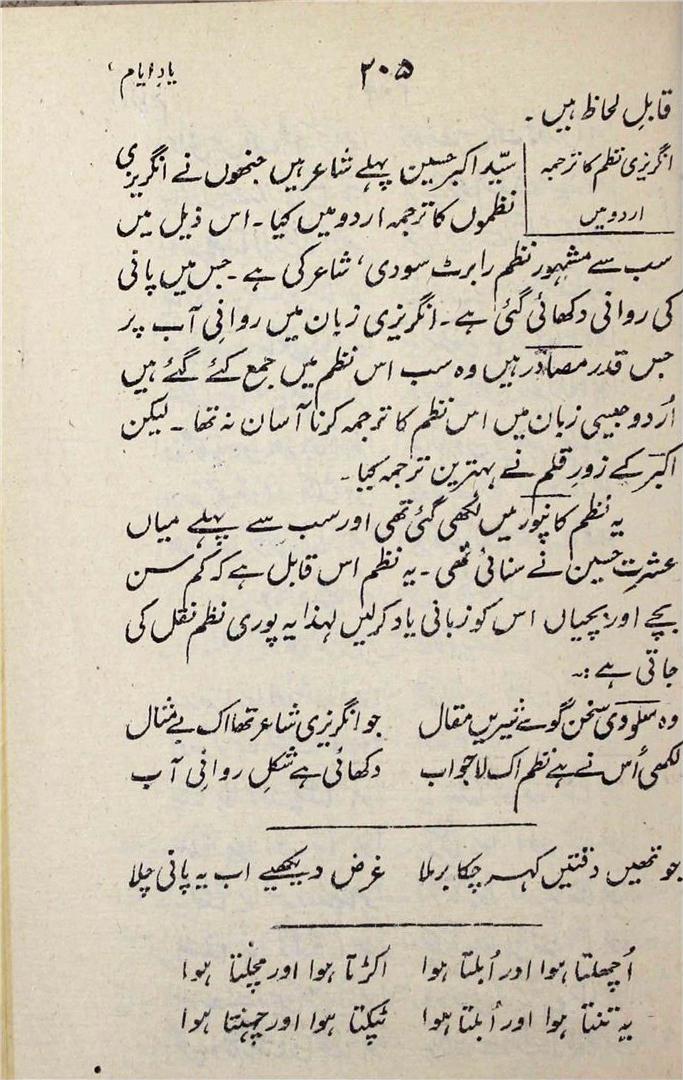 ۲۰۵ یادِ ایام،
قابلِ لحاظ ہیں۔
انگریزی نظم کا ترجمہ
اردو میں
سیّد اکبر حسین پہلے شاعر ہیں جنھوں نے انگریزی
نظموں کا ترجمہ اردو میں کیا۔ اس ذیل میں
سب سے مشہور نظم رابرٹ سودی، شاعر کی ہے۔ جس میں پانی
کی روانی دکھائی گئی ہے۔ انگریزی زبان میں روانیِ آب پر
جس قدر مصادر ہیں وہ سب اس نظم میں جمع کئے گئے ہیں
اُردو جیسی زبان میں اس نظم کا ترجمہ کرنا آسان نہ تھا۔ لیکن
اکبرؔ کے زورِ قلم نے بہترین ترجمہ کیا۔
یہ نظم کانپور میں لکھی گئی تھی اور سب سے پہلے میاں
عشرت حسین نے سنائی تھی۔ یہ نظم اس قابل ہے کہ کم سن
بچے اور بچیاں اس کو زبانی یاد کرلیں لہذا یہ پوری نظم نقل کی
جاتی ہے :۔
وہ سلودی سخن گوئے شیریں مقال جو انگریزی شاعر تھا اک بے مثال
لکھی اُس نے ہے نظم اک لاجواب دکھائی ہے شکلِ روانیِ آب
جو تھیں دقتیں کہہ چکا برملا غرض دیکھیے اب یہ پانی چلا
اُچھلتا ہوا اور اُبلتا ہوا اکڑتا ہوا اور مچلتا ہوا
یہ تنتا ہوا اور اُبلتا ہوا ٹپکتا ہوا اور چھنتا ہوا